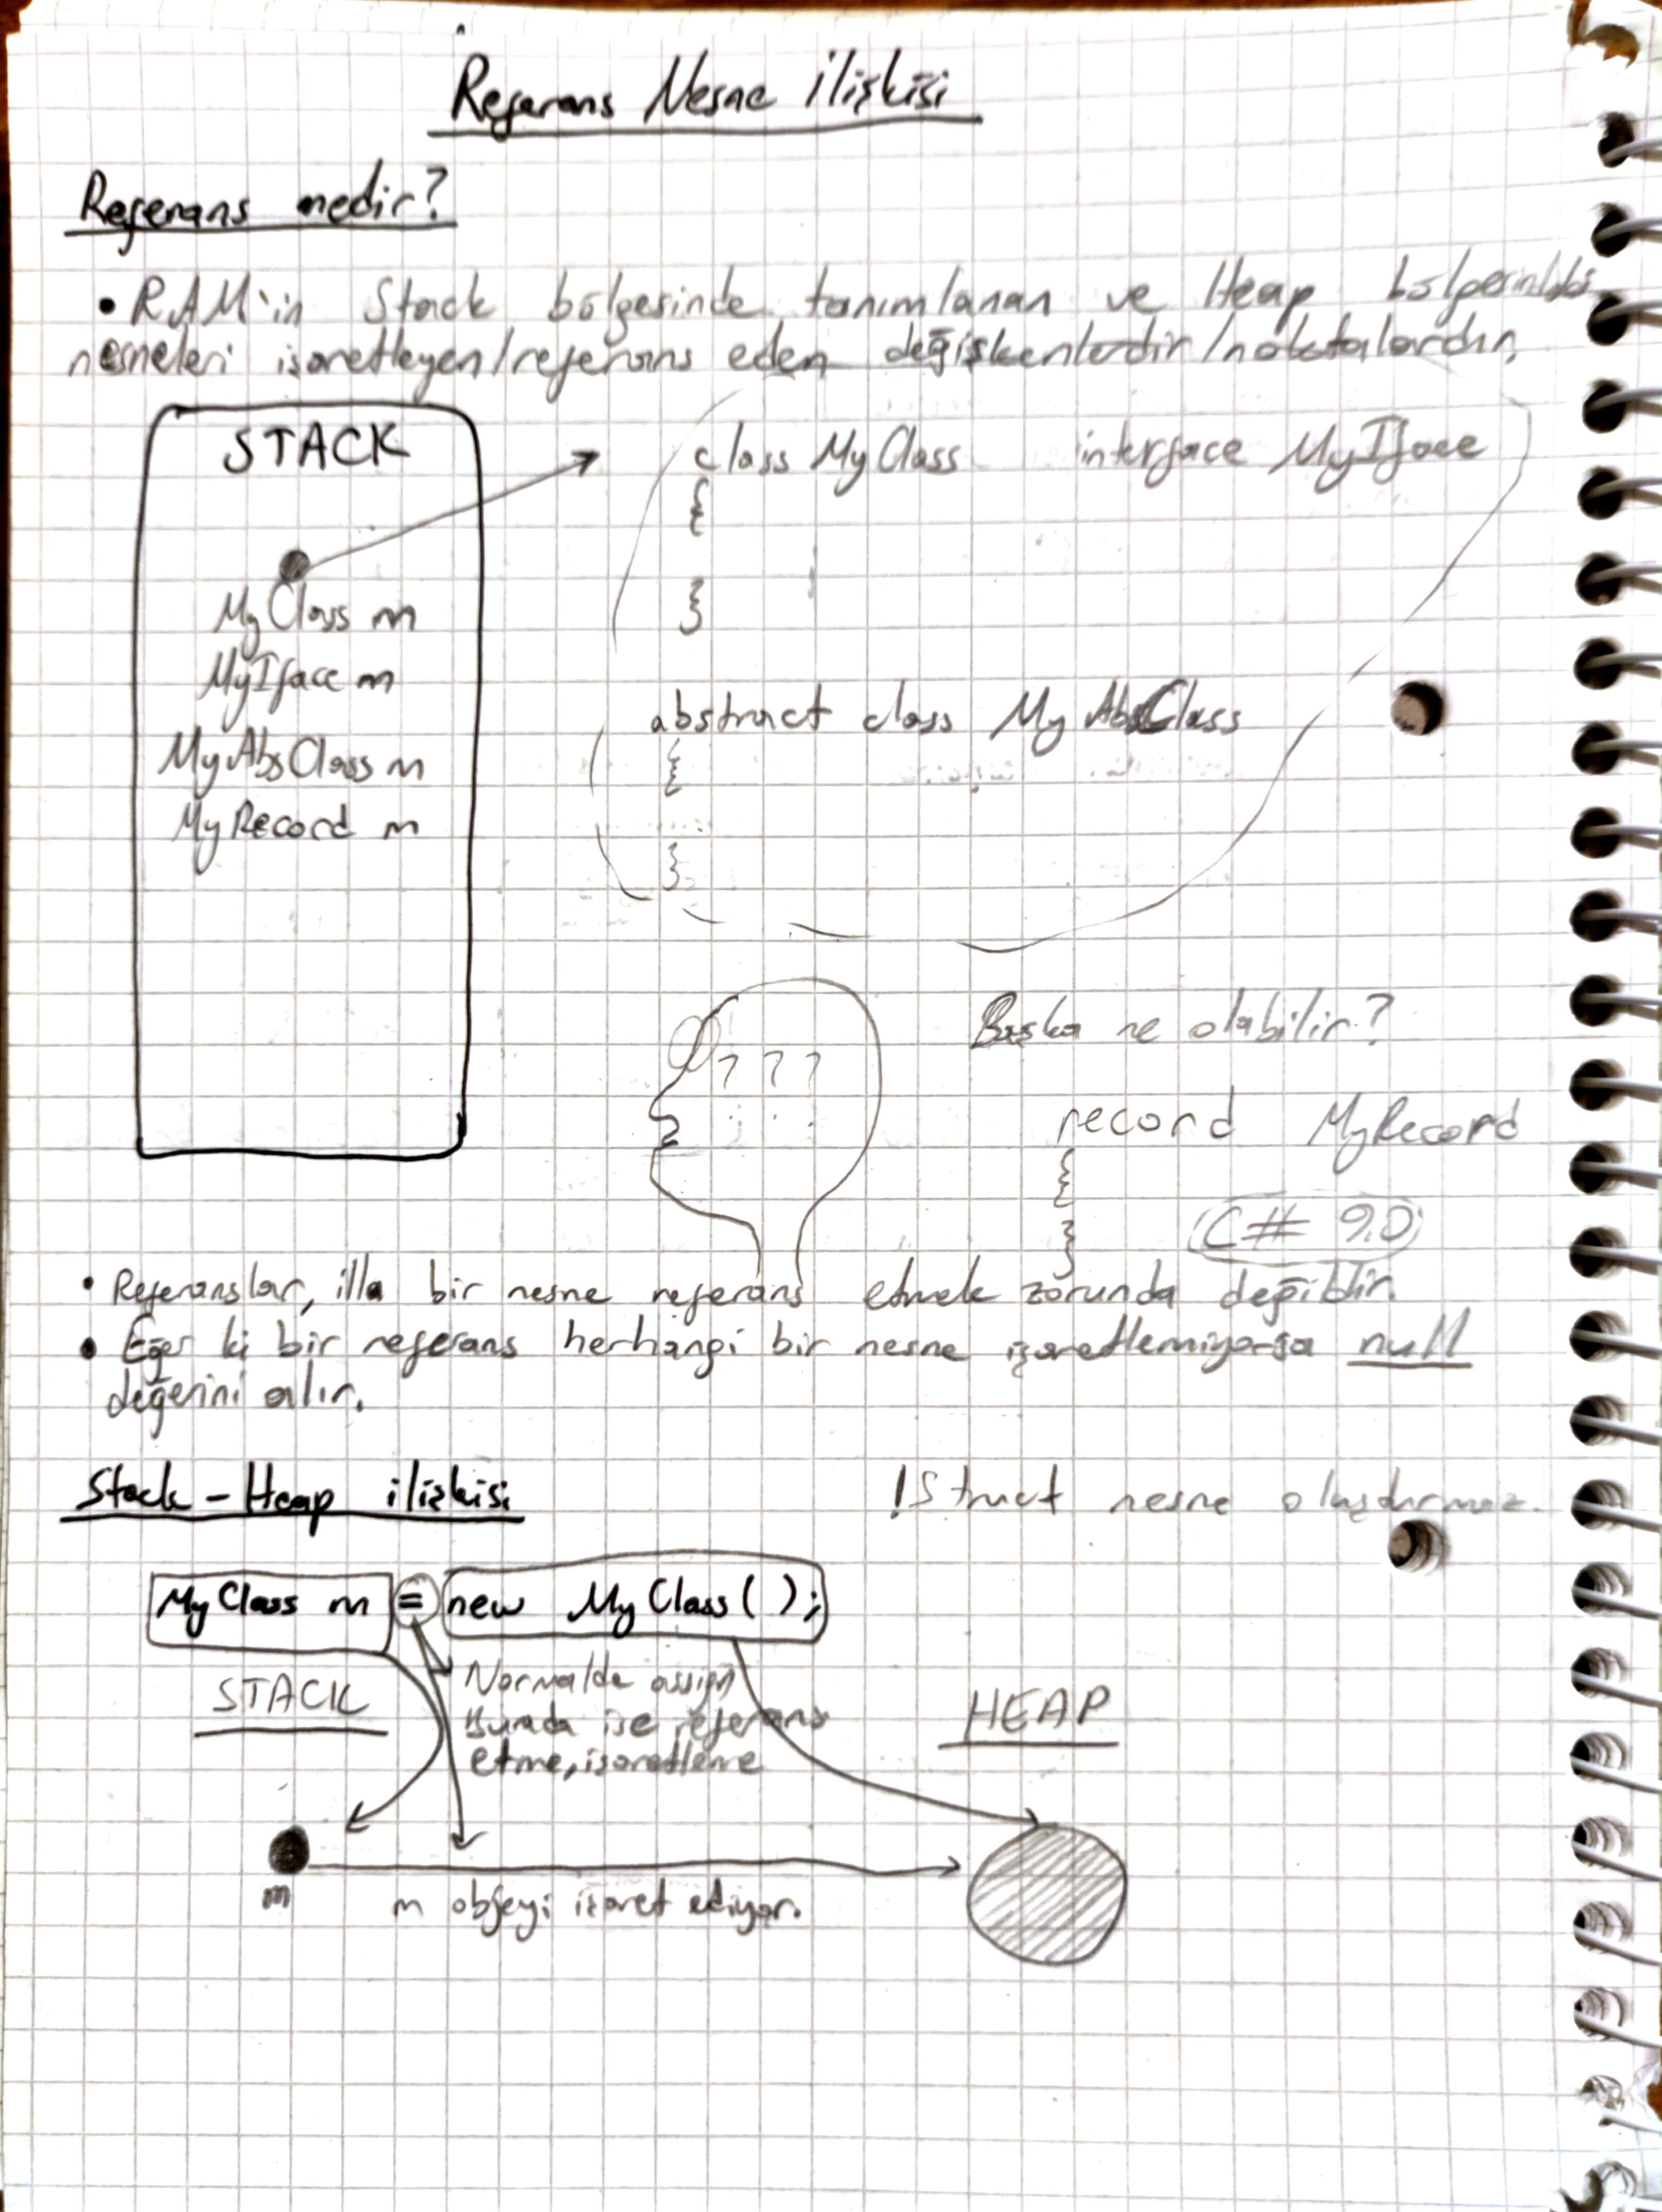 Referans Nesne ilişkisi
Referans nedir?
• RAM'in Stack bölgesinde tanımlanan ve Heap bölgesindeki
nesneleri işaretleyen/referans eden değişkenlerdir/noktalardır.
STACK
MyClass m
MyIface m
MyAbsClass m
MyRecord m
class MyClass interface MyIface
{
}
abstract class MyAbsClass
{
}
? ? ?
Başka ne olabilir?
record MyRecord
{
} C# 9.0
• Referanslar, illa bir nesne referans etmek zorunda değildir.
• Eğer ki bir referans herhangi bir nesne işaretlemiyorsa null
değerini alır.
Stack-Heap ilişkisi
!Struct nesne oluşturmaz.
MyClass m = new MyClass();
STACK
Normalde assign
Burada ise referans
etme, işaretleme
HEAP
m
m objeyi işaret ediyor.